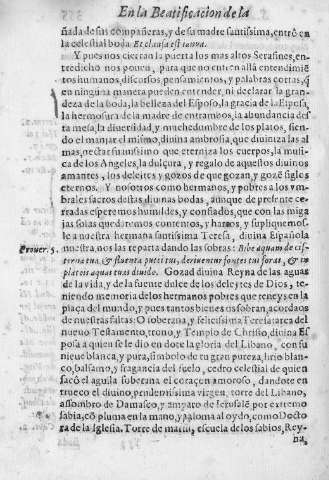 En la Beatificacion de la
ñada de sus compañeras, y de su madre santissima, entrò en
la celestial boda. Et clausa est ianua.
Y pues nos cierran la puerta los mas altos Serafines, en-
tredicho nos ponen, para que no entren allà entendimiẽ
tos humanos, discursos, pensamientos, y palabras cortas, q̃
en ninguna manera pueden entender, ni declarar la gran
deza de la boda, la belleza del Esposo, la gracia de la Esposa,
la hermosura de la madre de entrambos, la abundancia desta
mesa, la diuersidad, y muchedumbre de los platos, sien-
do el manjar el mismo, diuina ambrosia, que diuiniza las al
mas, nectar suauissimo que eterniza los cuerpos, la musi-
ca de los Angeles, la dulçura, y regalo de aquestos diuinos
amantes, los deleites y gozos de que gozan, y gozè siglos
eternos. Y nosotros como hermanos, y pobres a los vm-
brales sacros destas diuinas bodas, aunque de presente ce-
rradas esperemos humildes, y confiados, que con las miga
jas solas quedaremos contentos, y hartos, y supliquemos-
le a nuestra hermana santissima Teresa, diuina Española
nuestra, nos las reparta dando las sobras: Bibe aquam de cis-
Prouer. 5.
terna tua, & fluenta putei tui, deriuentur fontes tui foras, & in
plateis aquas tuas diuide. Gozad diuina Reyna de las aguas
de la vida, y de la fuente dulce de los deleytes de Dios, te-
niendo memoria de los hermanos pobres que teneys en la
plaça del mundo, y pues tantos bienes us sobran, acordaos
de nuestras faltas: O soberana, y felicissima Teresa: arca del
nueuo Testamento, trono, y Templo de Christo, diuina Es
posa a quien se le dio en dote la gloria del Libano, con su
nieue blanca, y pura, simbolo de tu gran pureza, lirio blan-
co, balsamo, y fragancia del suelo, cedro celestial de quien
sacò el aguila soberana el coraçon amoroso, dandote en
trueco el diuino, prudentissima virgen, torre del Libano,
assombro de Damasco, y amparo de Ierusalẽ por extremo
sabia, cõ pluma en la mano, y paloma al oydo, como Docto
ra de la Iglesia. Torre de marfil, escuela de los sabios, Rey-
na,